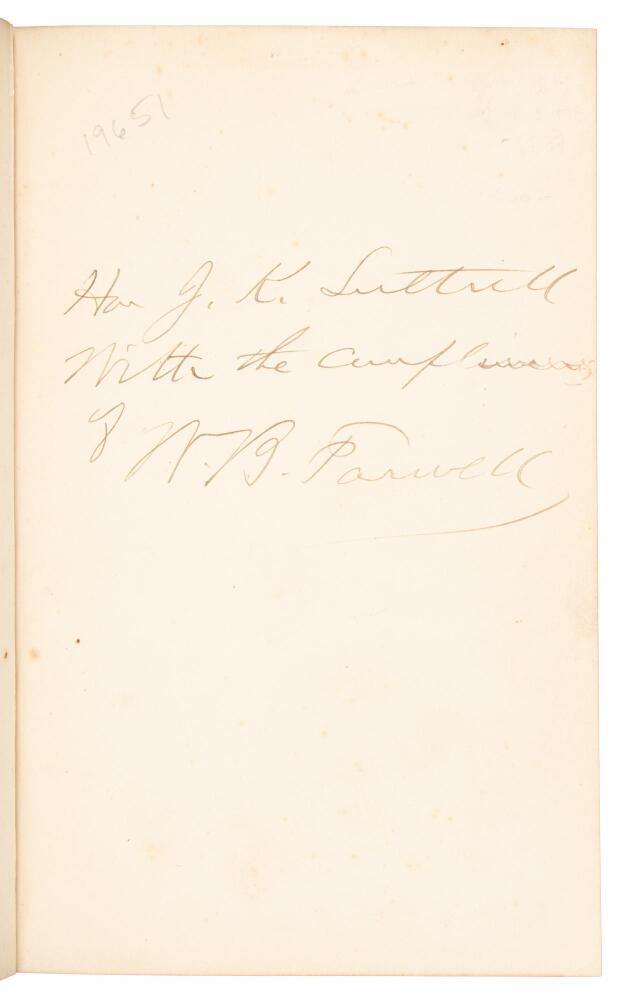 19651
Hon J. K. Luttrell
With the compliments
of W. B. Farwell